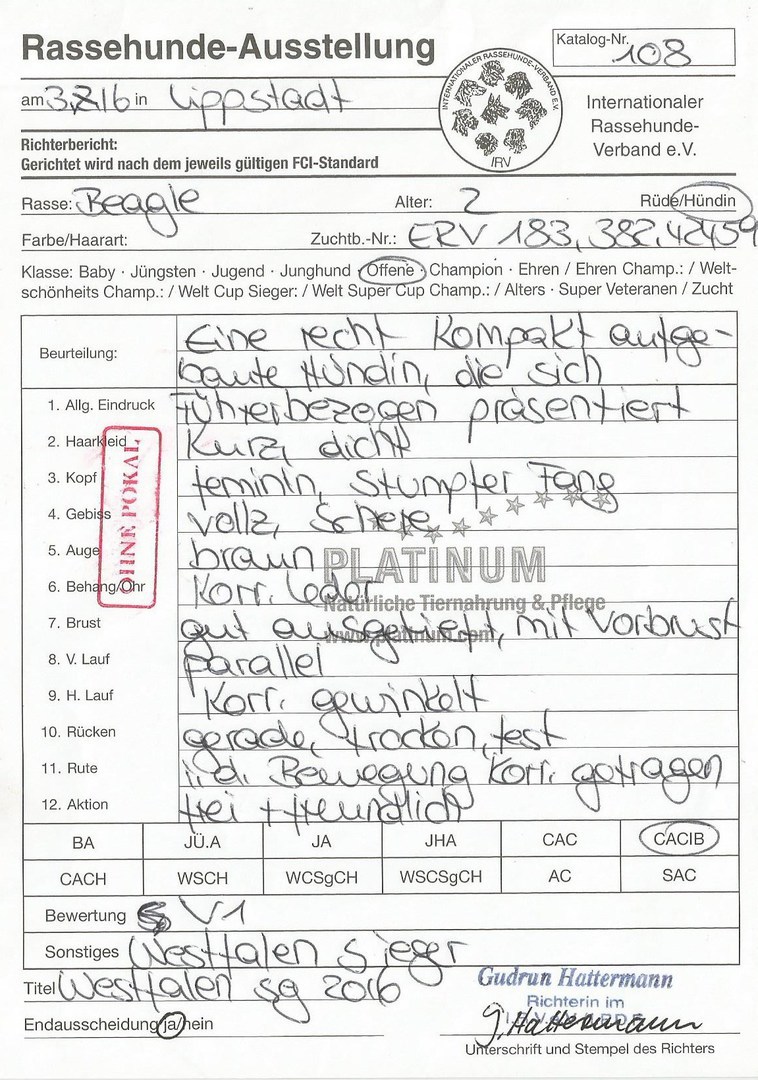 Rassehunde-Ausstellung
Katalog-Nr. 108
am 3.7.16 in Lippstadt
INTERNATIONALER RASSEHUNDE-VERBAND E.V.
IRV
Internationaler
Rassehunde-
Verband e.V.
Richterbericht:
Gerichtet wird nach dem jeweils gültigen FCI-Standard
Rasse: Beagle Alter: 2 Rüde/Hündin
Farbe/Haarart: Zuchtb.-Nr.: ERV 183,382,42459
Klasse: Baby · Jüngsten · Jugend · Junghund · Offene · Champion · Ehren / Ehren Champ.: / Welt-
schönheits Champ.: / Welt Cup Sieger: / Welt Super Cup Champ.: / Alters · Super Veteranen / Zucht
Beurteilung: Eine recht Kompakt aufge-
baute Hündin, die sich
1. Allg. Eindruck Führerbezogen präsentiert
2. Haarkleid Kurz, dicht
3. Kopf feminin, stumpfer Fang
4. Gebiss vollz, Schere
5. Auge braun
6. Behang/Ohr Korr. Leder
OHNE POKAL
PLATINUM
Natürliche Tiernahrung & Pflege
www.platinum.com
7. Brust gut ausgereift, mit Vorbrust
8. V. Lauf parallel
9. H. Lauf Korr. gewinkelt
10. Rücken gerade, trocken, fest
11. Rute i.d. Bewegung Korr. getragen
12. Aktion frei + freundlich
BA JÜ.A JA JHA CAC CACIB
CACH WSCH WCSgCH WSCSgCH AC SAC
Bewertung V1
Sonstiges Westfalen Sieger
Titel Westfalen sg 2016
Gudrun Hattermann
Richterin im
Endausscheidung ja/nein
G. Hattermann
Unterschrift und Stempel des Richters